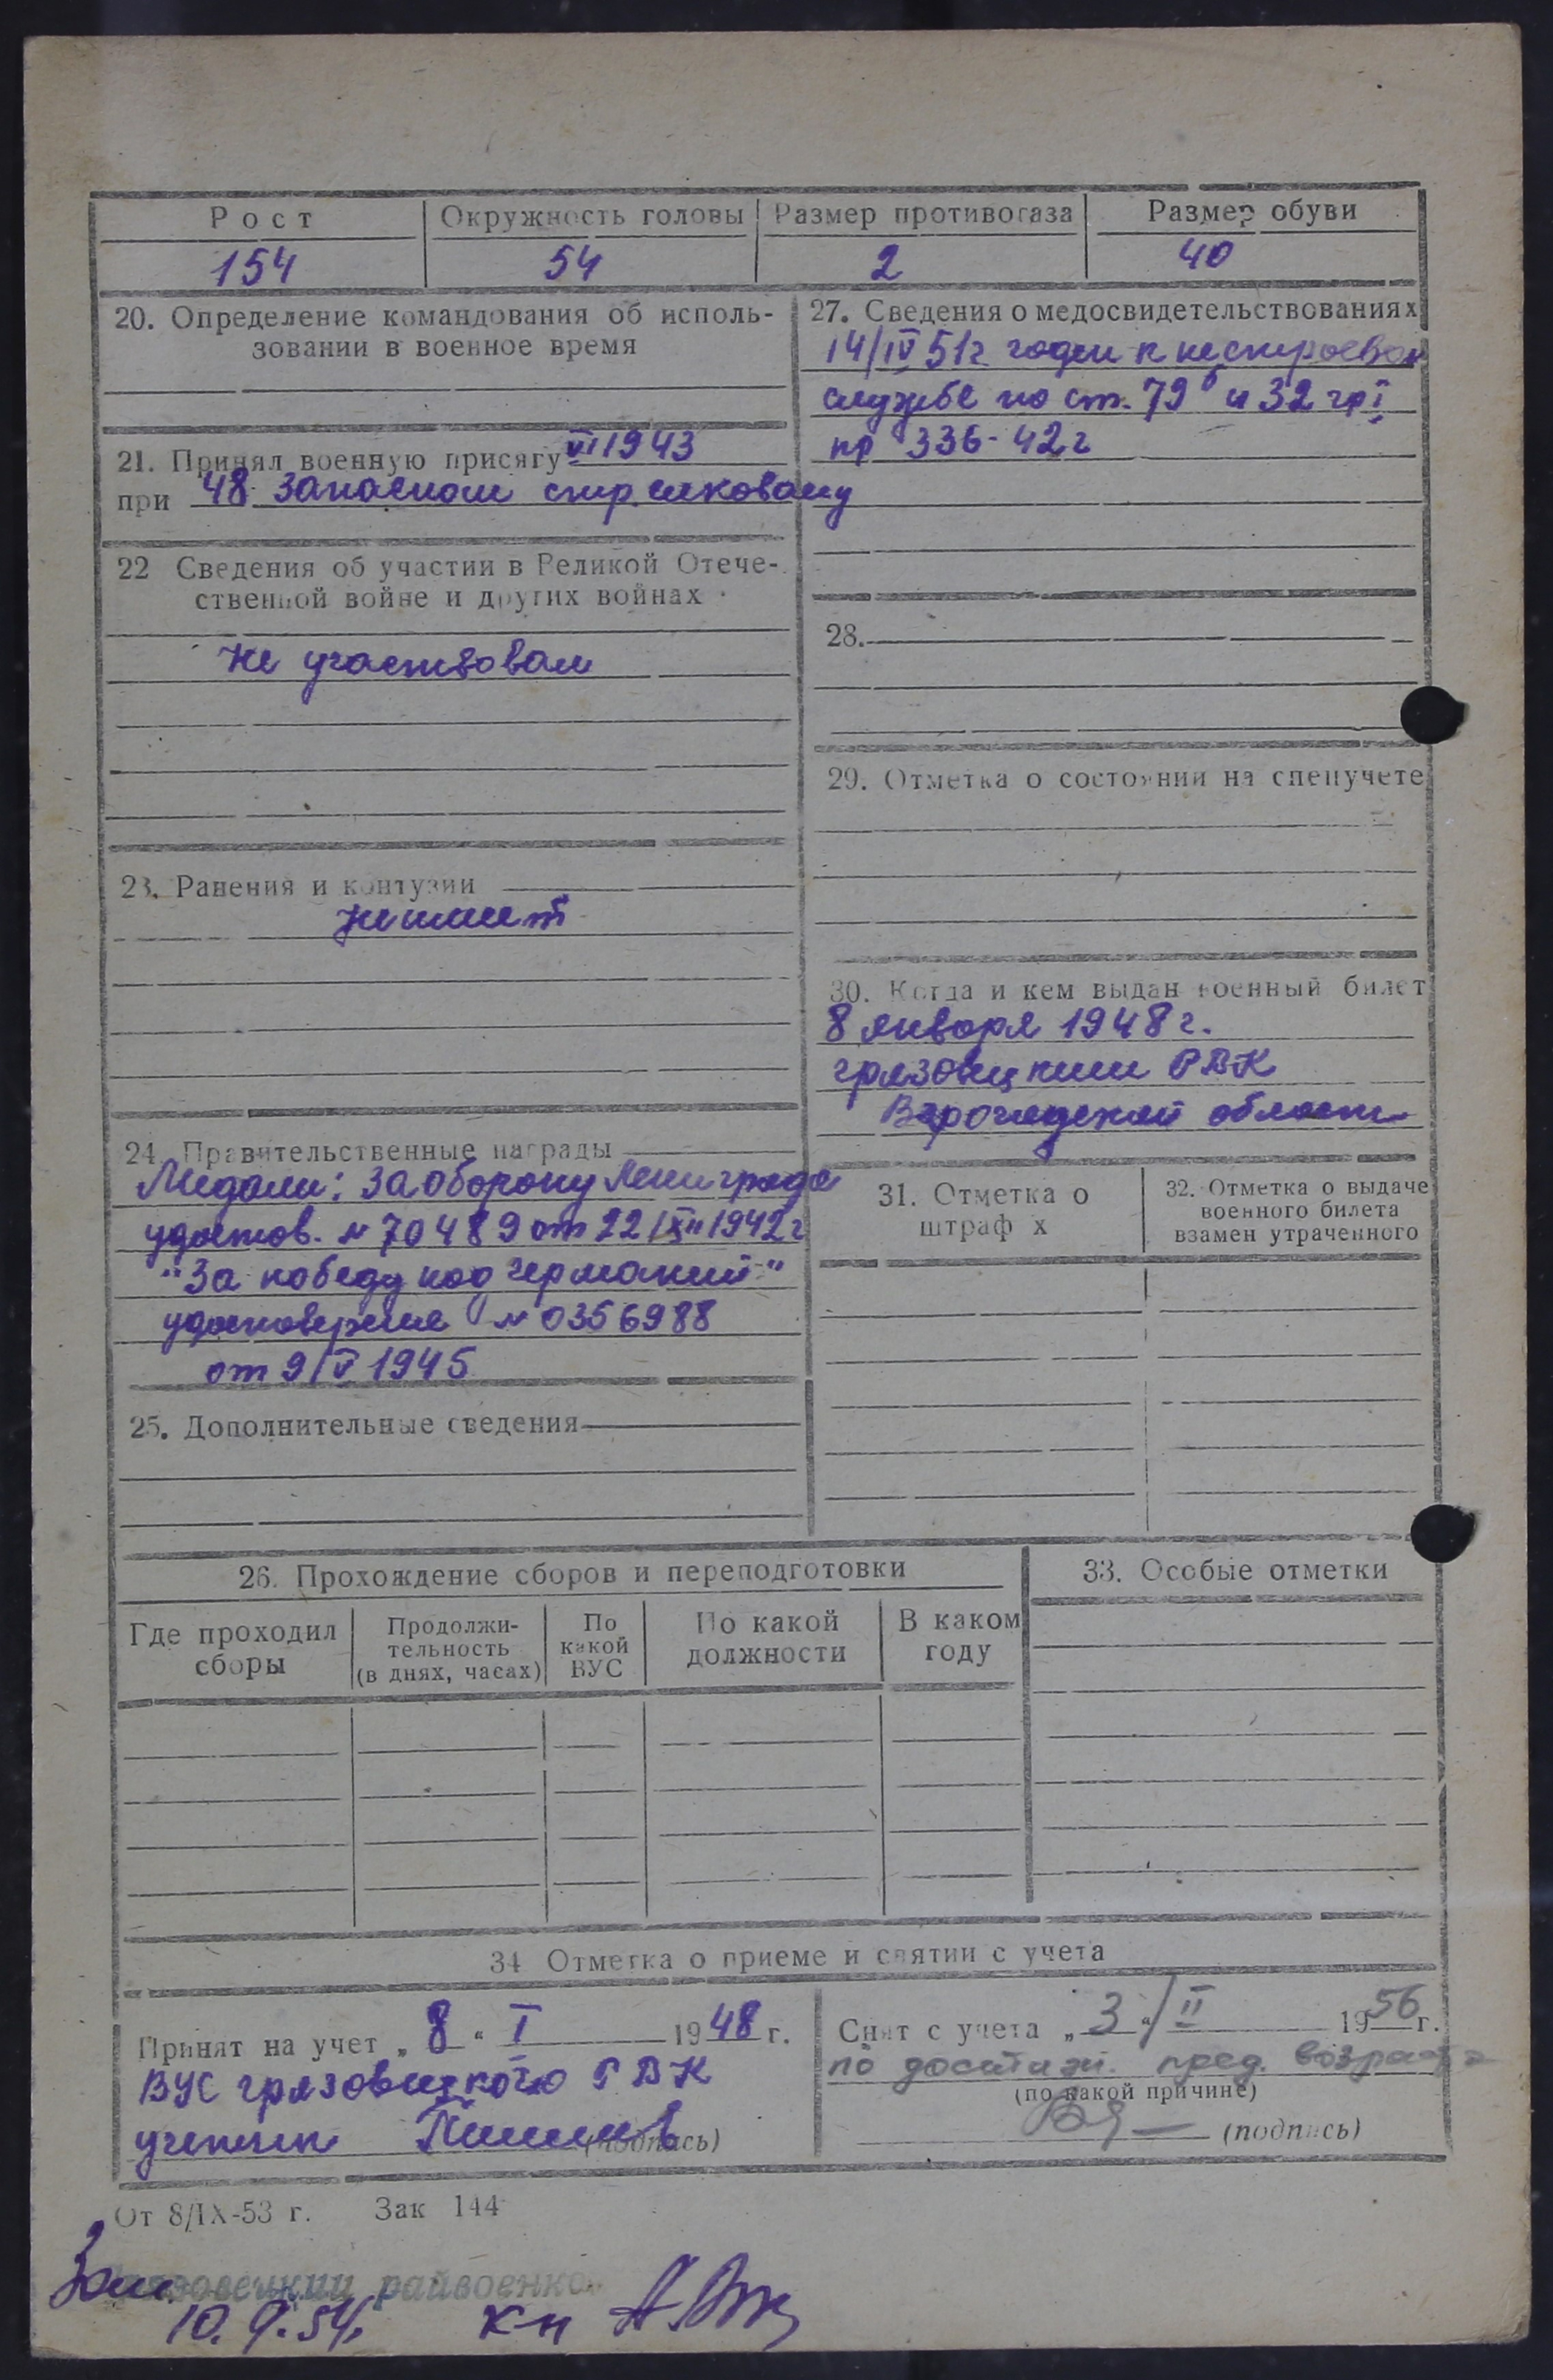 Рост
Окружность головы
Размер противогаза
Размер обуви
154
54
2
40
20. Определение командования об исполь-
зовании в военное время
21. Принял военную присягу VI 1943
при 48 запасном стрелковому
22 Сведения об участии в Великой Отече-
ственной войне и других войнах
Не участвовал
23. Ранения и контузии
Не имеет
24. Правительственные награды
Медали: За оборону Ленинграда
удостов. N 70489 от 22/XII 1942г
"За победу над Германией"
удостоверение N 0356988
от 9/V 1945
25. Дополнительные сведения
27. Сведения о медосвидетельствованиях
14/IV 51г годен к нестроевой
службе по ст. 79б и 32 гр I
пр 336-42г
28.
29. Отметка о состоянии на спецучете
30. Когда и кем выдан военный билет
8 января 1948г.
Грязовецким РВК
области
31. Отметка о
штраф х
32. Отметка о выдаче
военного билета
взамен утраченного
26. Прохождение сборов и переподготовки
Где проходил
сборы
Продолжи-
тельность
(в днях, часах)
По
какой
ВУС
По какой
должности
В каком
году
33. Особые отметки
34 Отметка о приеме и снятии с учета
Принят на учет „8“ I 1948 г.
ВУС Грязовецкого РВК
(подпись)
Снят с учета „3“/II 1956 г.
по достиж. пред. возраста
(по какой причине)
(подпись)
От 8/IX-53 г. Зак 144
Грязовецкий райвоенко
Зам.